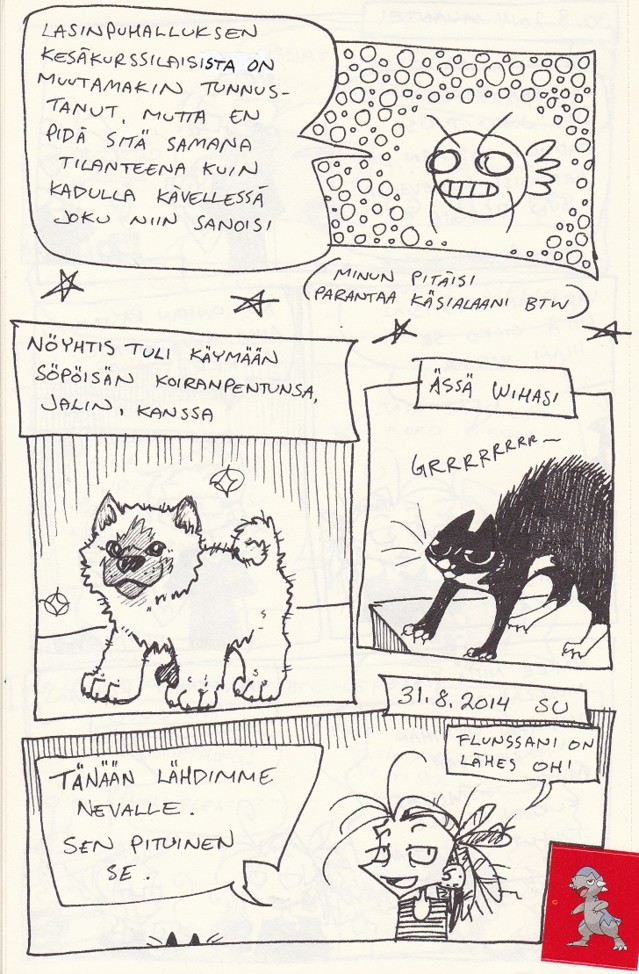 LASINPUHALLUKSEN
KESÄKURSSILAISISTA ON
MUUTAMAKIN TUNNUS-
TANUT, MUTTA EN
PIDÄ SITÄ SAMANA
TILANTEENA KUIN
KADULLA KÄVELLESSÄ
JOKU NIIN SANOISI
(MINUN PITÄISI
PARANTAA KÄSIALAANI BTW)
NÖYHTIS TULI KÄYMÄÄN
SÖPÖISÄN KOIRANPENTUNSA,
JALIN, KANSSA
ÄSSÄ WIHASI
GRRRRRRRR~
31.8.2014 SU
FLUNSSANI ON
LÄHES OH!
TÄNÄÄN LÄHDIMME
NEVALLE.
SEN PITUINEN
SE.